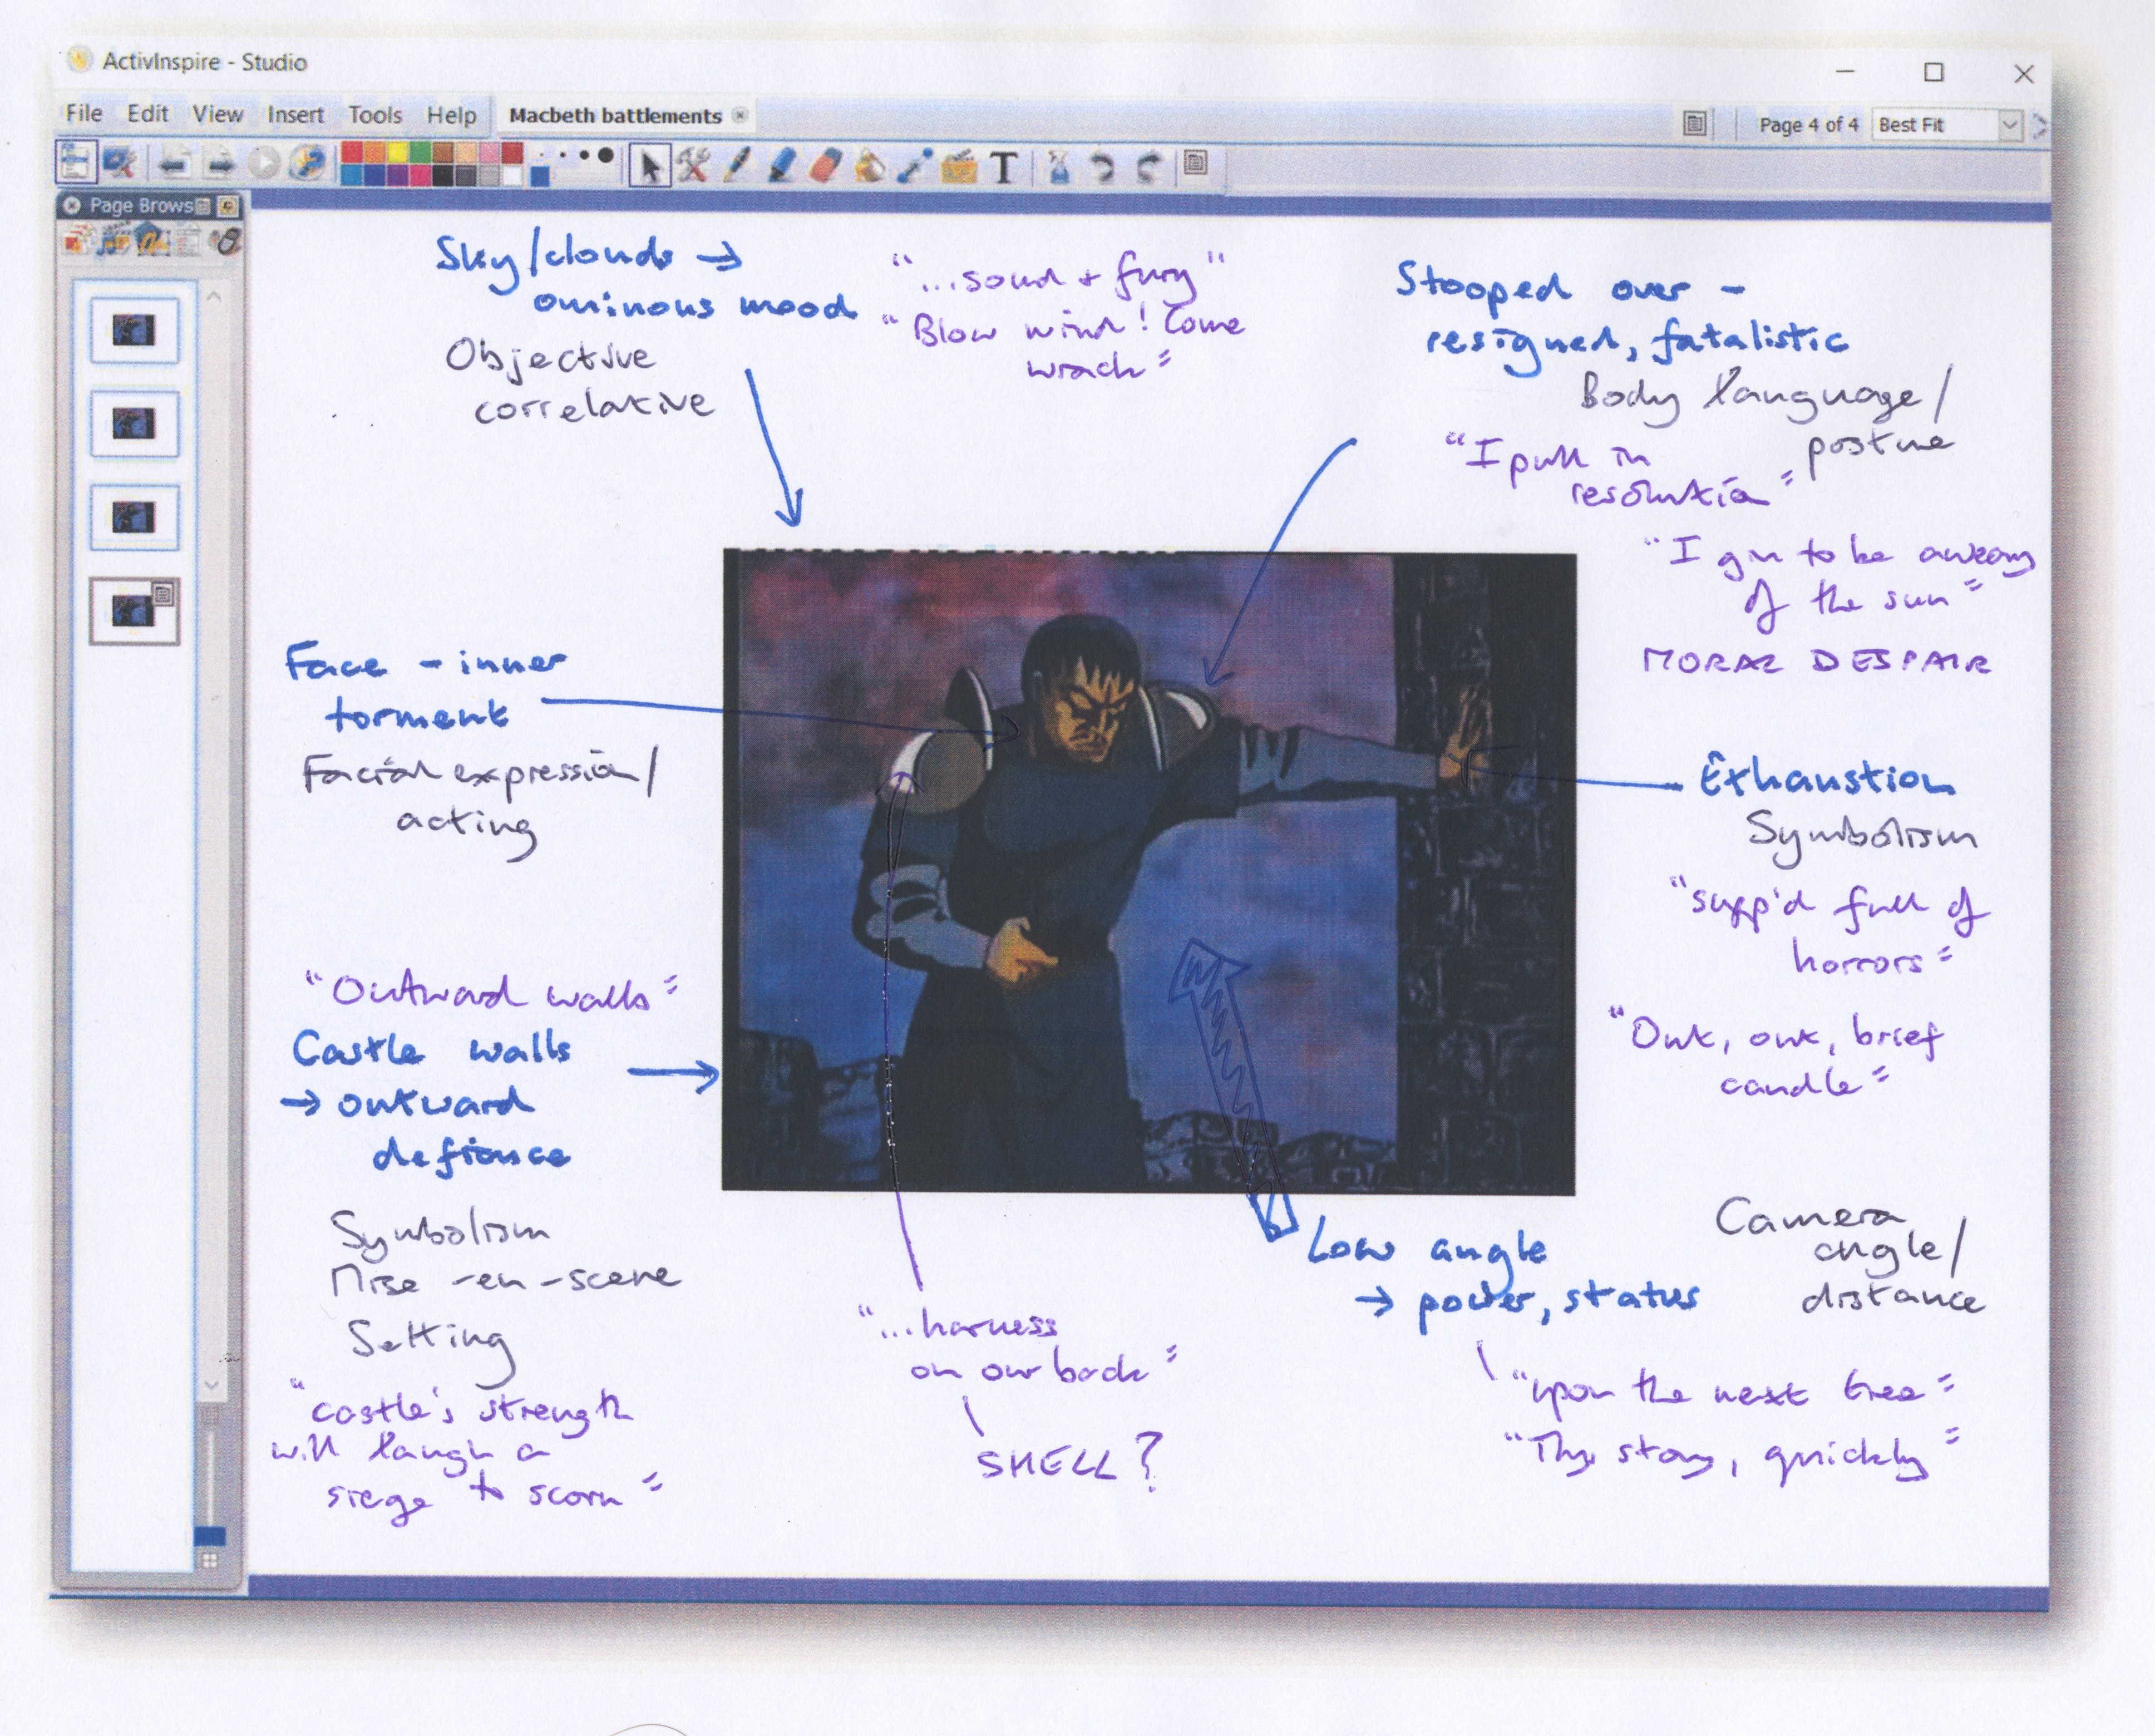 ActivInspire - Studio
File Edit View Insert Tools Help Macbeth battlements
Page 4 of 4 Best Fit
Page Brows
Sky/clouds →
ominous mood
Objective
correlative
"...sound + fury"
"Blow wind! Come
wrack"
Stooped over -
resigned, fatalistic
Body language/
posture
"I pull in
resolution"
"I gin to be aweary
of the sun"
MORAL DESPAIR
Face - inner
torment
Facial expression/
acting
Exhaustion
Symbolism
"supp'd full of
horrors"
"Out, out, brief
candle"
"Outward walls"
Castle walls
→ outward
defiance
Symbolism
Mise-en-scene
Setting
"castle's strength
will laugh a
siege to scorn"
"...harness
on our back"
SHELL?
Low angle
→ power, status
Camera
angle/
distance
"upon the next tree"
"Thy story, quickly"